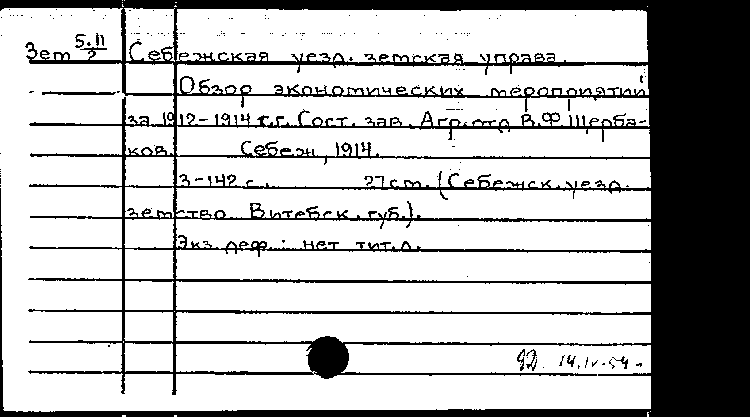 Зет 5.11/2 Себежская уезд. земская управа.
Обзор экономических мероприятий
за 1912-1914 г.г. Сост. зав. Агр. отд В.Ф Щерба-
ков. Себеж, 1914.
3-142 с. 27 см. (Себежск. уезд.
земство Витебск. губ.).
Экз. деф.: нет тит. л.
14.IV-54